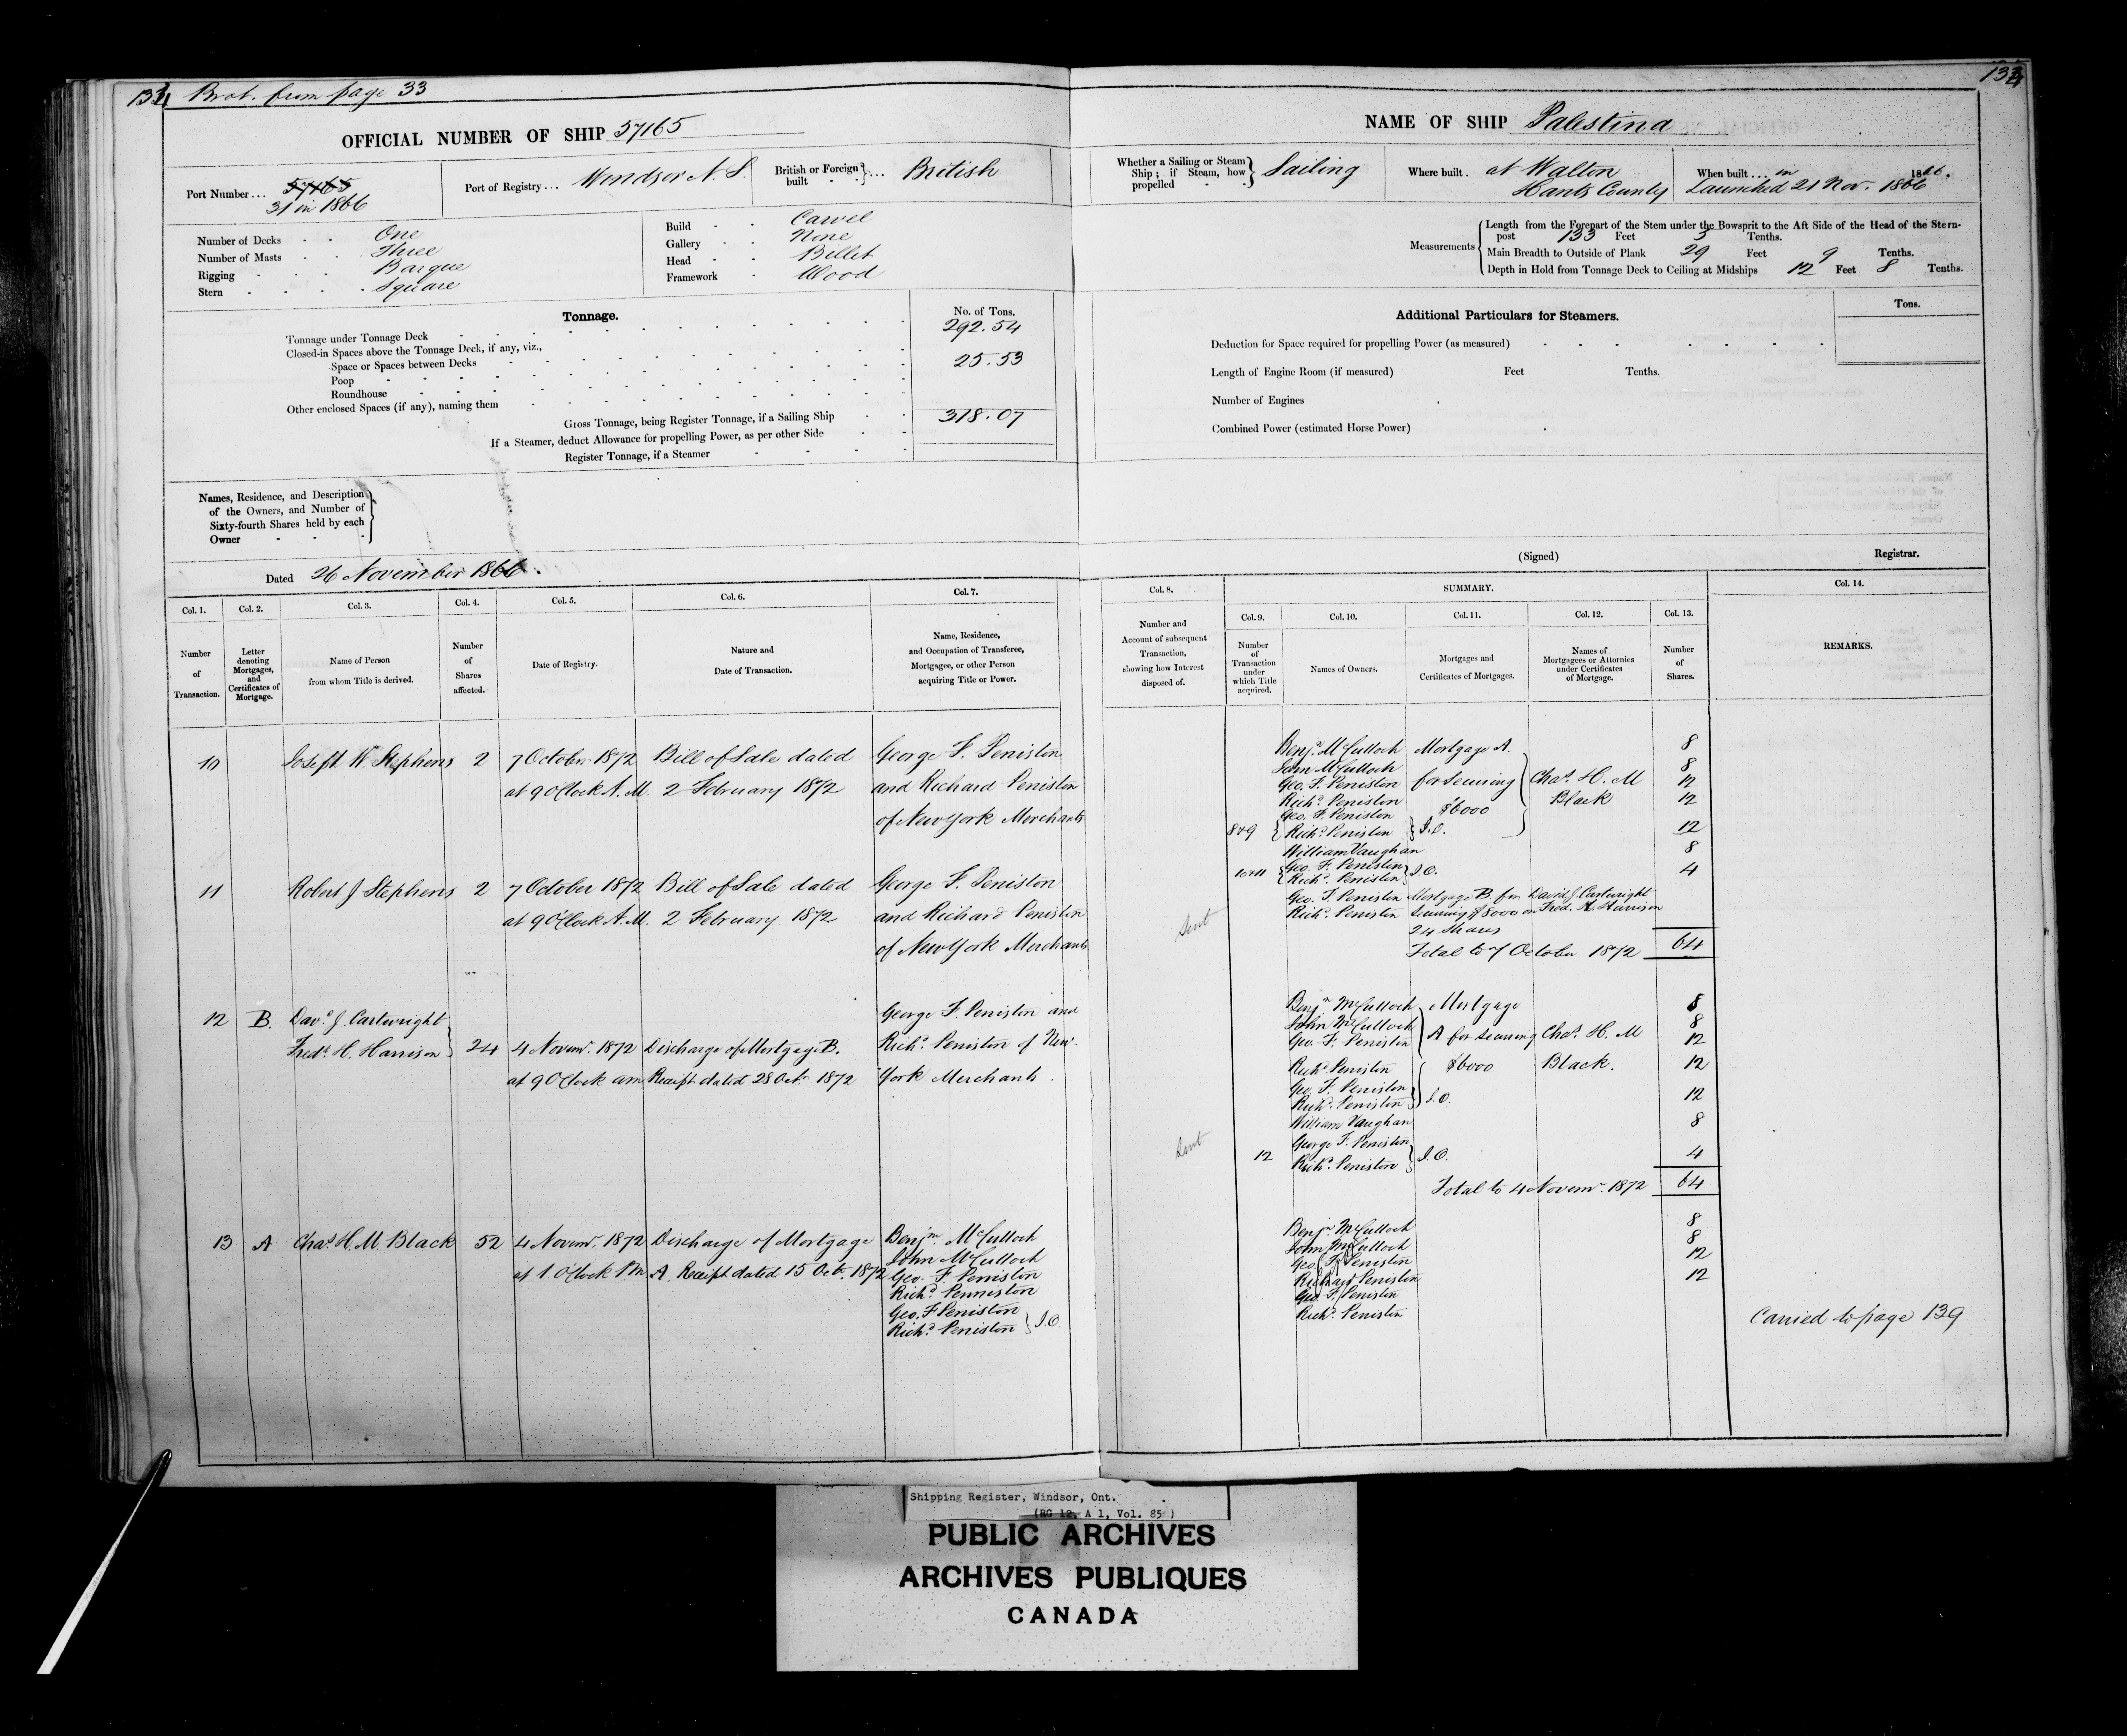 134 Brot. from page 33
OFFICIAL NUMBER OF SHIP 57165
Port Number... 57165
31 in 1866
Port of Registry... Windsor N.S.
British or Foreign built } ... British
Number of Decks - - One
Number of Masts - - Three
Rigging - - - Barque
Stern - - - - Square
Build - - Carvel
Gallery - - None
Head - - Billet
Framework - Wood
Tonnage.
No. of Tons.
Tonnage under Tonnage Deck 292.54
Closed-in Spaces above the Tonnage Deck, if any, viz.,
Space or Spaces between Decks 25.53
Poop
Roundhouse
Other enclosed Spaces (if any), naming them
Gross Tonnage, being Register Tonnage, if a Sailing Ship 318.07
If a Steamer, deduct Allowance for propelling Power, as per other Side
Register Tonnage, if a Steamer
Names, Residence, and Description
of the Owners, and Number of
Sixty-fourth Shares held by each
Owner
Dated 26 November 1866.
Col. 1. Col. 2. Col. 3. Col. 4. Col. 5. Col. 6. Col. 7.
Number of Transaction.
Letter denoting Mortgages, and Certificates of Mortgage.
Name of Person from whom Title is derived.
Number of Shares affected.
Date of Registry.
Nature and Date of Transaction.
Name, Residence, and Occupation of Transferee, Mortgagee, or other Person acquiring Title or Power.
10 Joseph W Stephens 2 7 October 1872 Bill of Sale dated George F. Peniston
at 9 OClock A.M. 2 February 1872 and Richard Peniston
of New York Merchants
11 Robert J Stephens 2 7 October 1872 Bill of Sale dated George F. Peniston
at 9 OClock A.M. 2 February 1872 and Richard Peniston
of New York Merchants
12 B. Davd. J. Cartwright George F. Peniston and
Fredk. H. Harrison } 24 4 Novemr. 1872 Discharge of Mortgage B. Richd. Peniston of New
at 9 OClock am Receipt dated 28 Octr. 1872 York Merchants.
13 A Chas. H. M. Black 52 4 Novemr. 1872 Discharge of Mortgage Benjm. McCulloch
John McCulloch
at 1 OClock PM A. Receipt dated 15 Oct. 1872 Geo. F. Peniston
Richd. Penniston
Geo. F Peniston
Richd. Peniston } J.O.
134
NAME OF SHIP Palestina
Whether a Sailing or Steam Ship; if Steam, how propelled } Sailing
Where built. at Walton
Hants County
When built... in 1866.
Launched 21 Nov. 1866
Measurements
Length from the Forepart of the Stem under the Bowsprit to the Aft Side of the Head of the Stern-
post 133 Feet 3 Tenths.
Main Breadth to Outside of Plank 29 Feet 9 Tenths.
Depth in Hold from Tonnage Deck to Ceiling at Midships 12 Feet 8 Tenths.
Additional Particulars for Steamers.
Tons.
Deduction for Space required for propelling Power (as measured)
Length of Engine Room (if measured) Feet Tenths.
Number of Engines
Combined Power (estimated Horse Power)
(Signed) Registrar.
Col. 8. SUMMARY. Col. 14.
Col. 9. Col. 10. Col. 11. Col. 12. Col. 13.
Number and Account of subsequent Transaction, showing how Interest disposed of.
Number of Transaction under which Title acquired.
Names of Owners.
Mortgages and Certificates of Mortgages.
Names of Mortgagees or Attornies under Certificates of Mortgage.
Number of Shares.
REMARKS.
Benjn. McCulloch Mortgage A. 8
John McCulloch 8
Geo. F. Peniston for securing Chas. H. M 12
Richd. Peniston $6000 Black 12
Geo. F. Peniston
8&9 { Richd. Peniston } J.O. 12
William Vaughan 8
10&11 { Geo. F. Peniston
Richd. Peniston } J.O. 4
Geo. F. Peniston Mortgage B for David J Cartwright
Richd. Peniston securing $8000 on Fred. H. Harrison
Sent 24 Shares
Total to 7 October 1872 64
Benjn. McCulloch Mortgage 8
John McCulloch 8
Geo. F. Peniston A for securing Chas. H. M 12
Richd. Peniston $6000 Black. 12
Geo. F. Peniston
Richd. Peniston } J.O. 12
William Vaughan 8
George F. Peniston
Sent 12 Richd. Peniston } J.O. 4
Total to 4 Novemr. 1872 64
Benjn McCulloch 8
John McCulloch 8
Geo F. Peniston 12
Richard Peniston 12
Geo F. Peniston
Richd. Peniston
Carried to page 139
Shipping Register, Windsor, Ont.
(RG 12, A 1, Vol. 85 )
PUBLIC ARCHIVES
ARCHIVES PUBLIQUES
CANADA